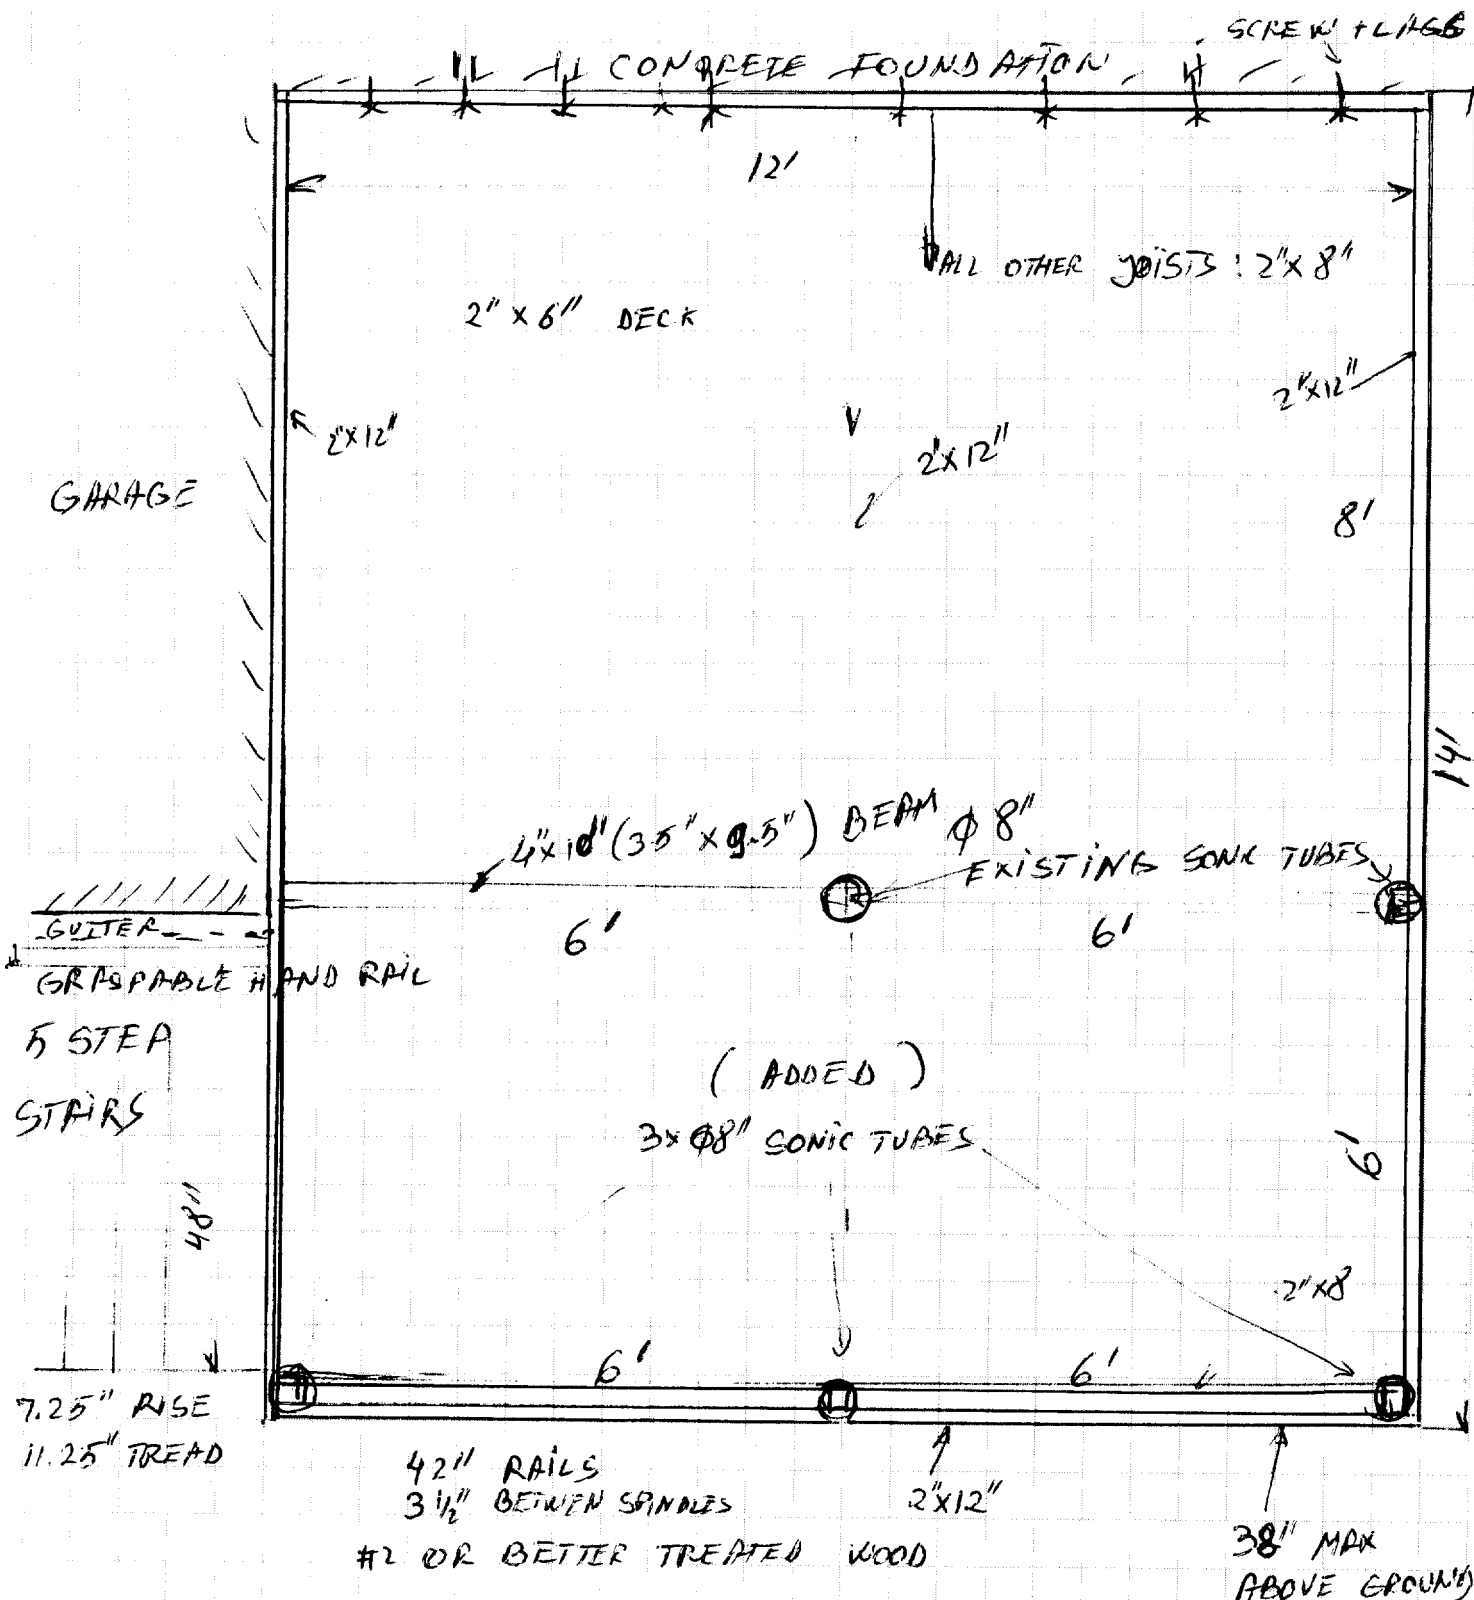 SCREW + LAGS
CONCRETE FOUNDATION
12'
ALL OTHER JOISTS : 2"x 8"
2" x 6" DECK
2"x12"
2"x12"
2"x12"
GARAGE
8'
14'
4"x10" (3.5" x 9.5") BEAM
φ 8"
EXISTING SONIC TUBES
GUTTER
6'
6'
GRASPABLE HAND RAIL
5 STEP
STAIRS
( ADDED )
3x φ8" SONIC TUBES
6'
48"
2"x8
6'
6'
7.25" RISE
11.25" TREAD
42" RAILS
3 1/2" BETWEN SPINDLES
2"x12"
#2 OR BETTER TREATED WOOD
38" MAX
ABOVE GROUND